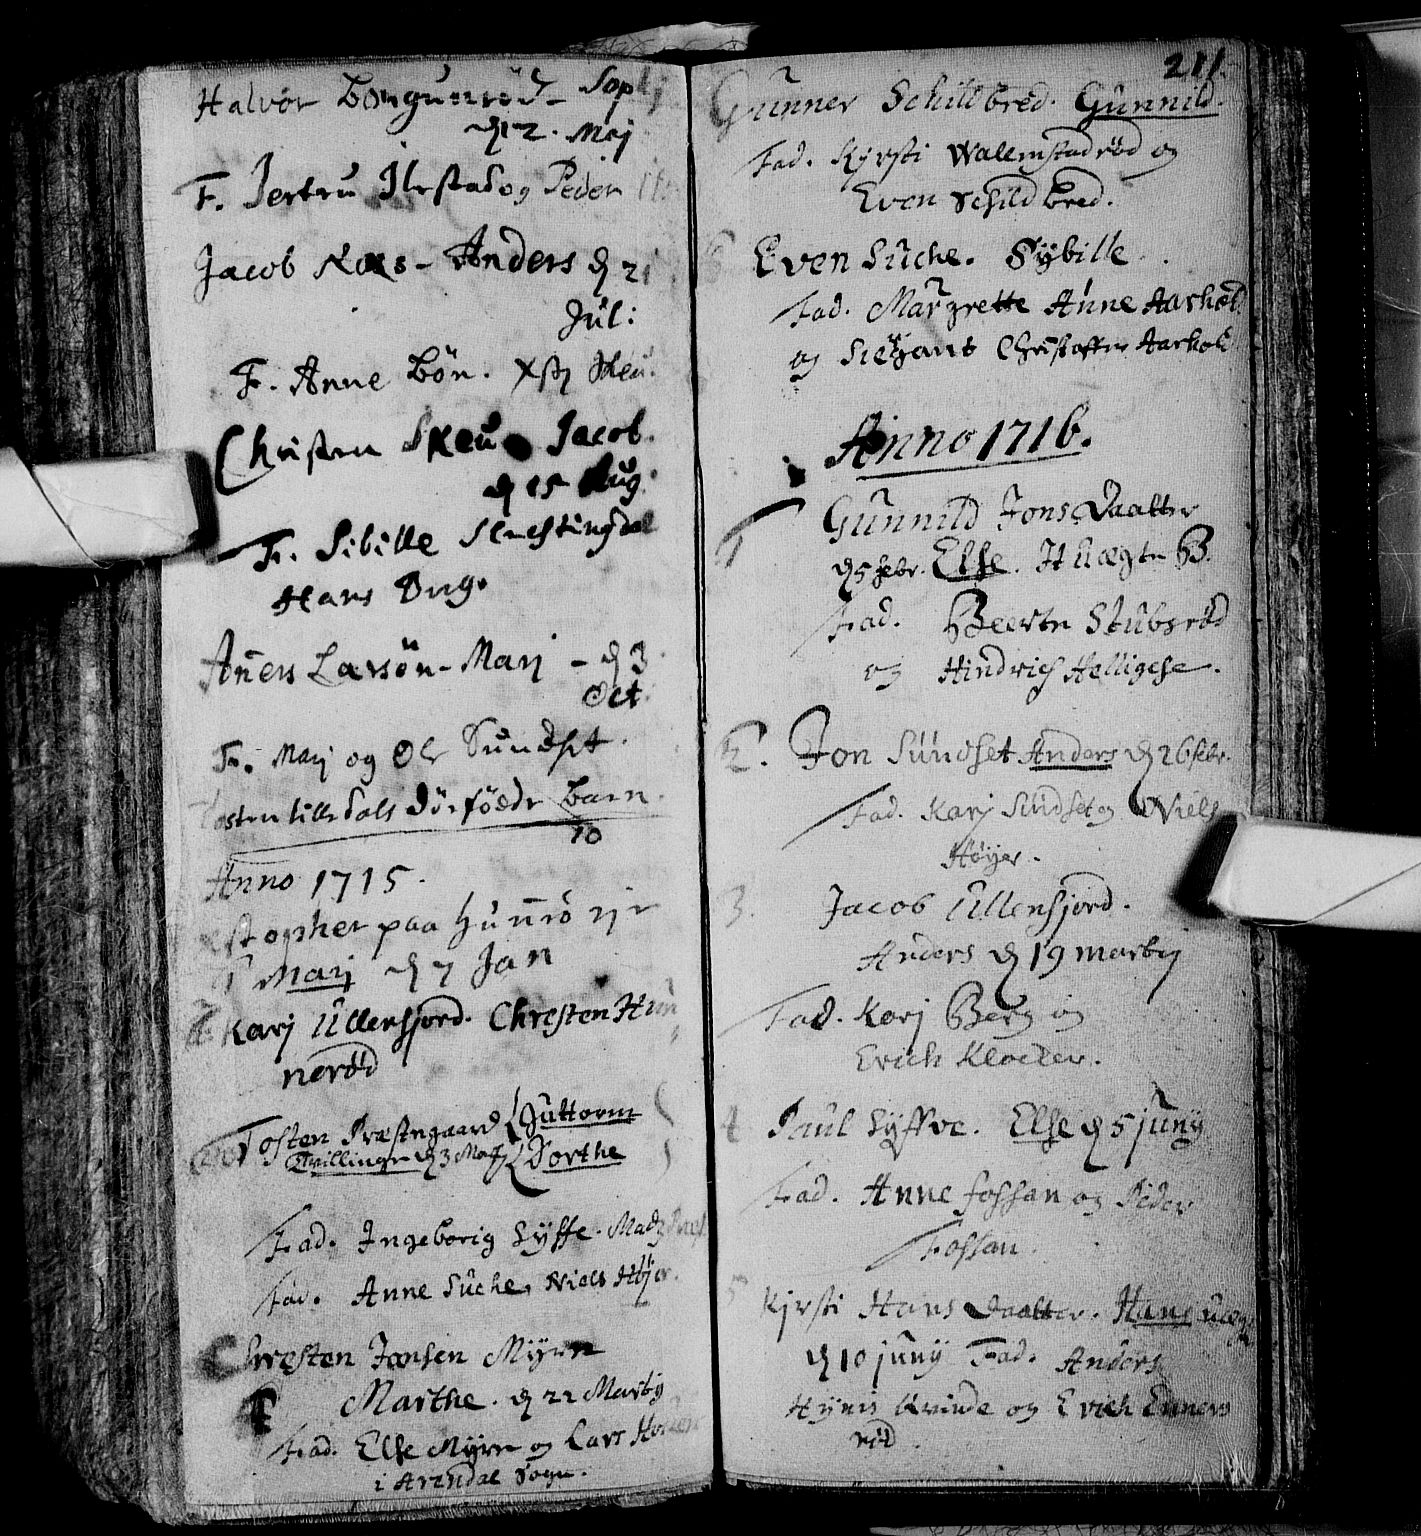 Halvor Borgunrød - Soph
d 12. Maj
F. Jertru Ilrstad og Peder
Jacob Roes - Anders d 21
Jul:
F. Anne Bön. Xstj Skeu.
Christen Skeu Jacob.
d 15 Aug.
F. Sibille
Hans Ong.
Aners Larsön - Marj - d 3
Oct.
F. Marj og Ole Sundset.
Tosten tillsdals dörföedde barn.
10
Anno 1715.
stopher paa hunnrö
1 Marj d 7 Jan
F. Karj Ullensjord. Chresten Hun
nerød
Tosten Præstegaard Guttorm
Tvillinger d 3 Maj Dorthe
Fad. Ingeborig Syffe. Madz
Fad. Anne Suche, Niels Höjer.
Chresten Jonsen Myrre
Marthe. d 22 Martij
Fad. Else Myrre og Lars
i Arendal Sogn.
211.
Gunner Schilbred. Gunnild.
Fad. Kyrsti Walemstadrød og
Even Schildbred.
6 Even Suche. Sybille.
Fad. Margrette Anne Aarhold
og Siejant Christoffer Aarhold
Anno 1716.
1 Gunnild Jons Daatter
d 5 febr. Else. U Ægte B.
Fad. Beerte Stubsrød
og Hindrich Helligese.
2. Jon Sundset Anders d 26 febr.
Fad. Karj Sundset og Niels
Høyer.
3. Jacob Ullensjord.
Anders d 19 martij
Fad. Karj Berg og
Erich Klocker.
4 Paul Syffve. Else d 5 juny
Fad. Anne fossan og Peder
Fossan.
5 Kjrsti Hans Daatter. Hans uægte
d 10 juny Fad. Anders
Hynis Kvinde og Erich Enners
rød.